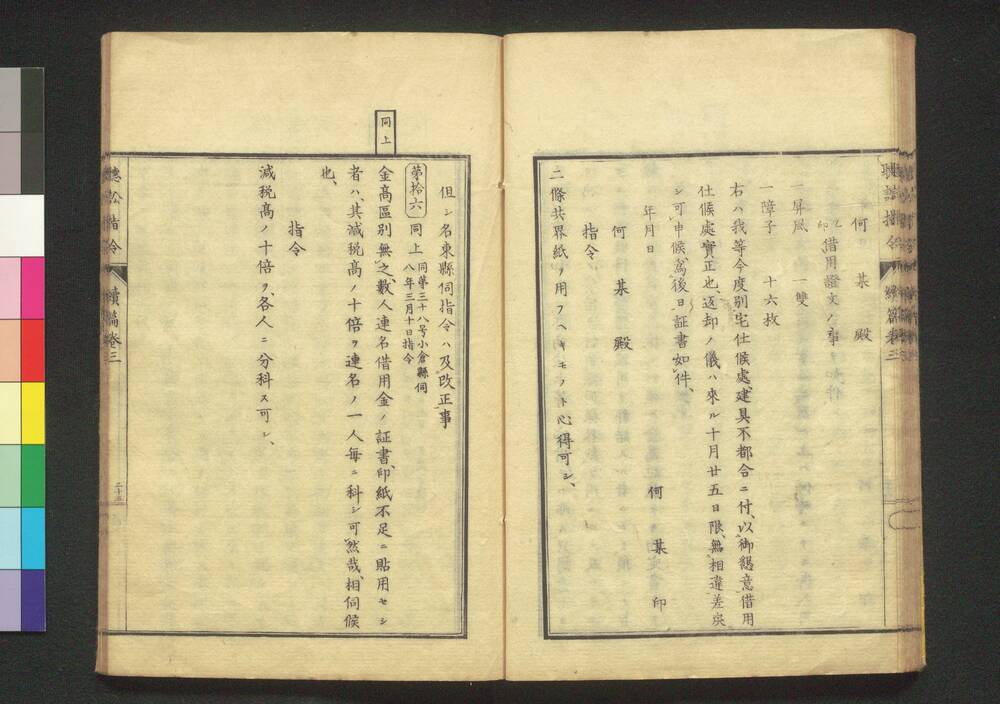 聽訟指令
續篇卷三
何某殿
印
借用證文ノ事
一屏風 一雙
一障子 十六枚
右ハ我等今度別宅仕候處、建具不都合ニ付、以御懇意借用
仕候處實正也、返却ノ儀ハ來ル十月廿五日限、無相違差戻
シ可申候、爲後日証書如件、
年月日
何某印
何某殿
指令
二條共界紙ヲ用フヘキモノト心得可シ、
但シ名東縣伺指令ハ及改正事
同上
第拾六
同上
同第三十八号小倉縣伺
八年三月十日指令
金高區別無之、數人連名借用金ノ証書、印紙不足ニ貼用セシ
者ハ、其減税高ノ十倍ヲ連名ノ一人毎ニ科シ可然哉、相伺候
也、
指令
減税高ノ十倍ヲ、各人ニ分科ス可シ、
聽訟指令
續篇卷三
二十五